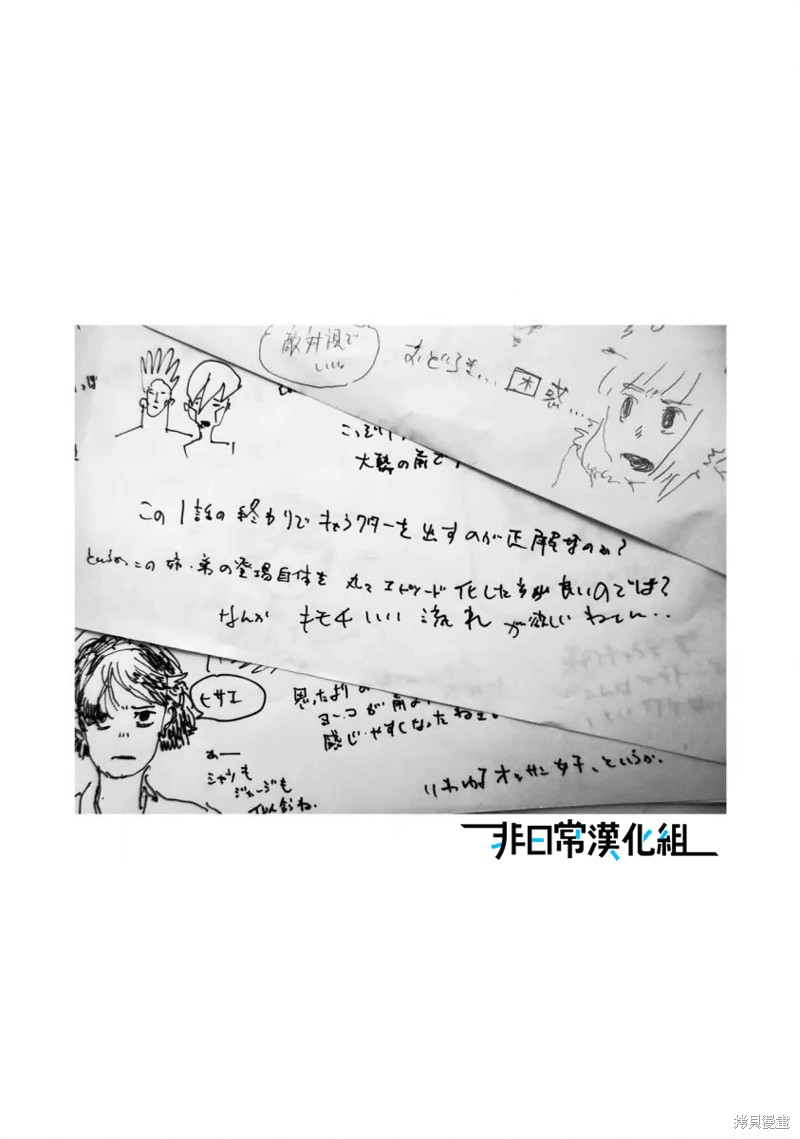 敵対視で
いいな
おどろき... 困惑...
大勢の前で
この1話の終わりでキャラクターを出すのが正解なのか?
というか、この姉・弟の登場自体を丸々エピソード化した方が良いのでは?
なんかキモチいい流れが欲しいねてん..
ヒサエ
思ったより
ヨーコが前よ
感じやすくなったねェ。
あー
シャツも
ジャージも
似合うね.
いわゆるオッサン女子、というか.
非日常漢化組
拷貝漫畫